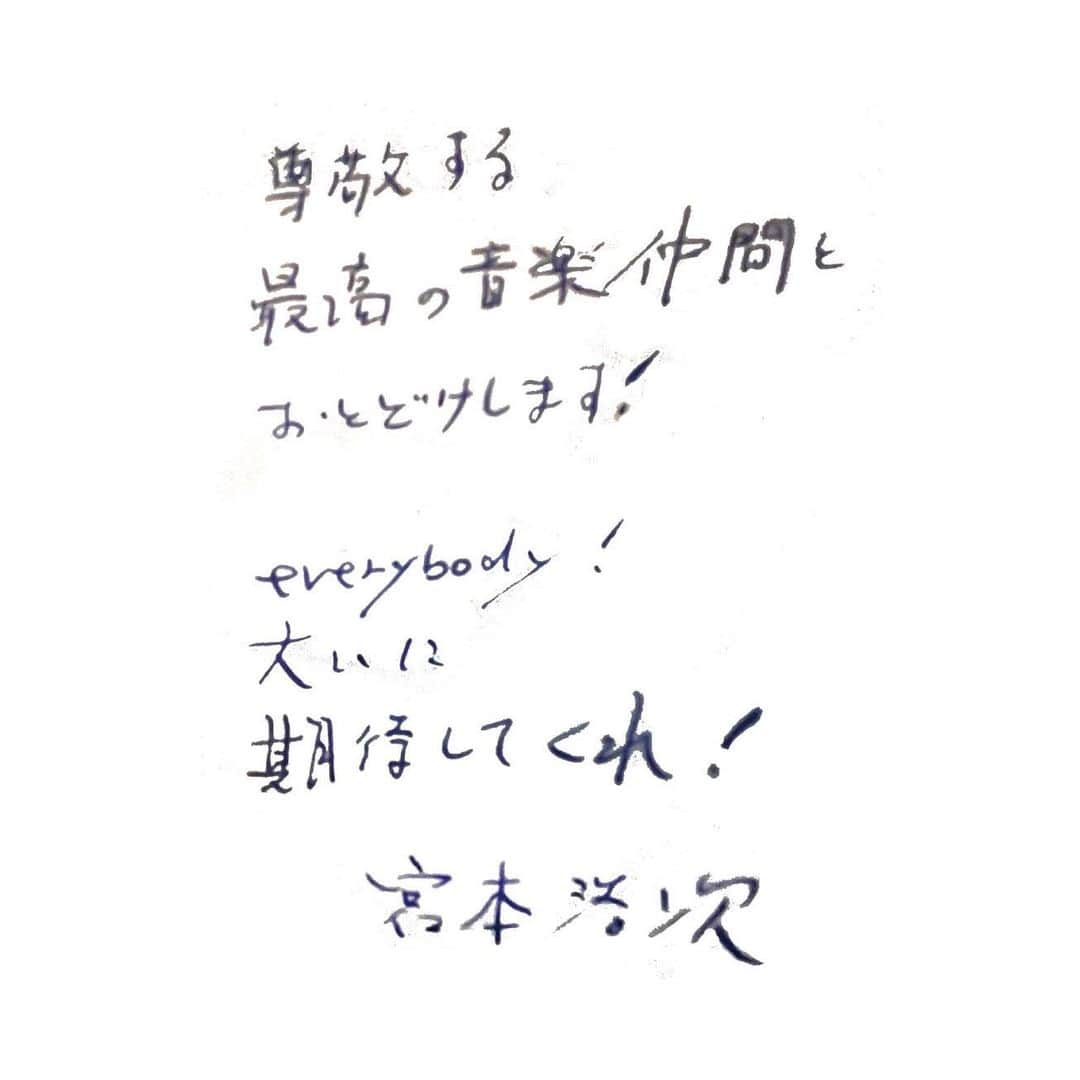 尊敬する
最高の音楽仲間と
おとどけします!
everybody!
大いに
期待してくれ!
宮本浩次